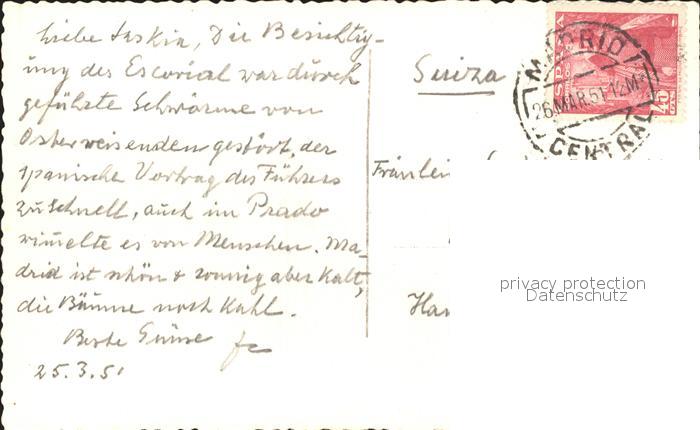 Liebe Saskia, Die Besichtig-
ung des Escorial war durch
geführte Schwärme von
Osterreisenden gestört, der
spanische Vortrag des Führers
zu schnell, auch im Prado
wimelte es von Menschen. Ma-
drid ist schön & sonnig aber kalt,
die Bäume noch kahl.
Beste Grüsse
25.3.51
Suiza
Fräulein
MADRID
26.MAR.51.12M
CENTRAL
ESPAÑA
45
CTS
privacy protection
Datenschutz